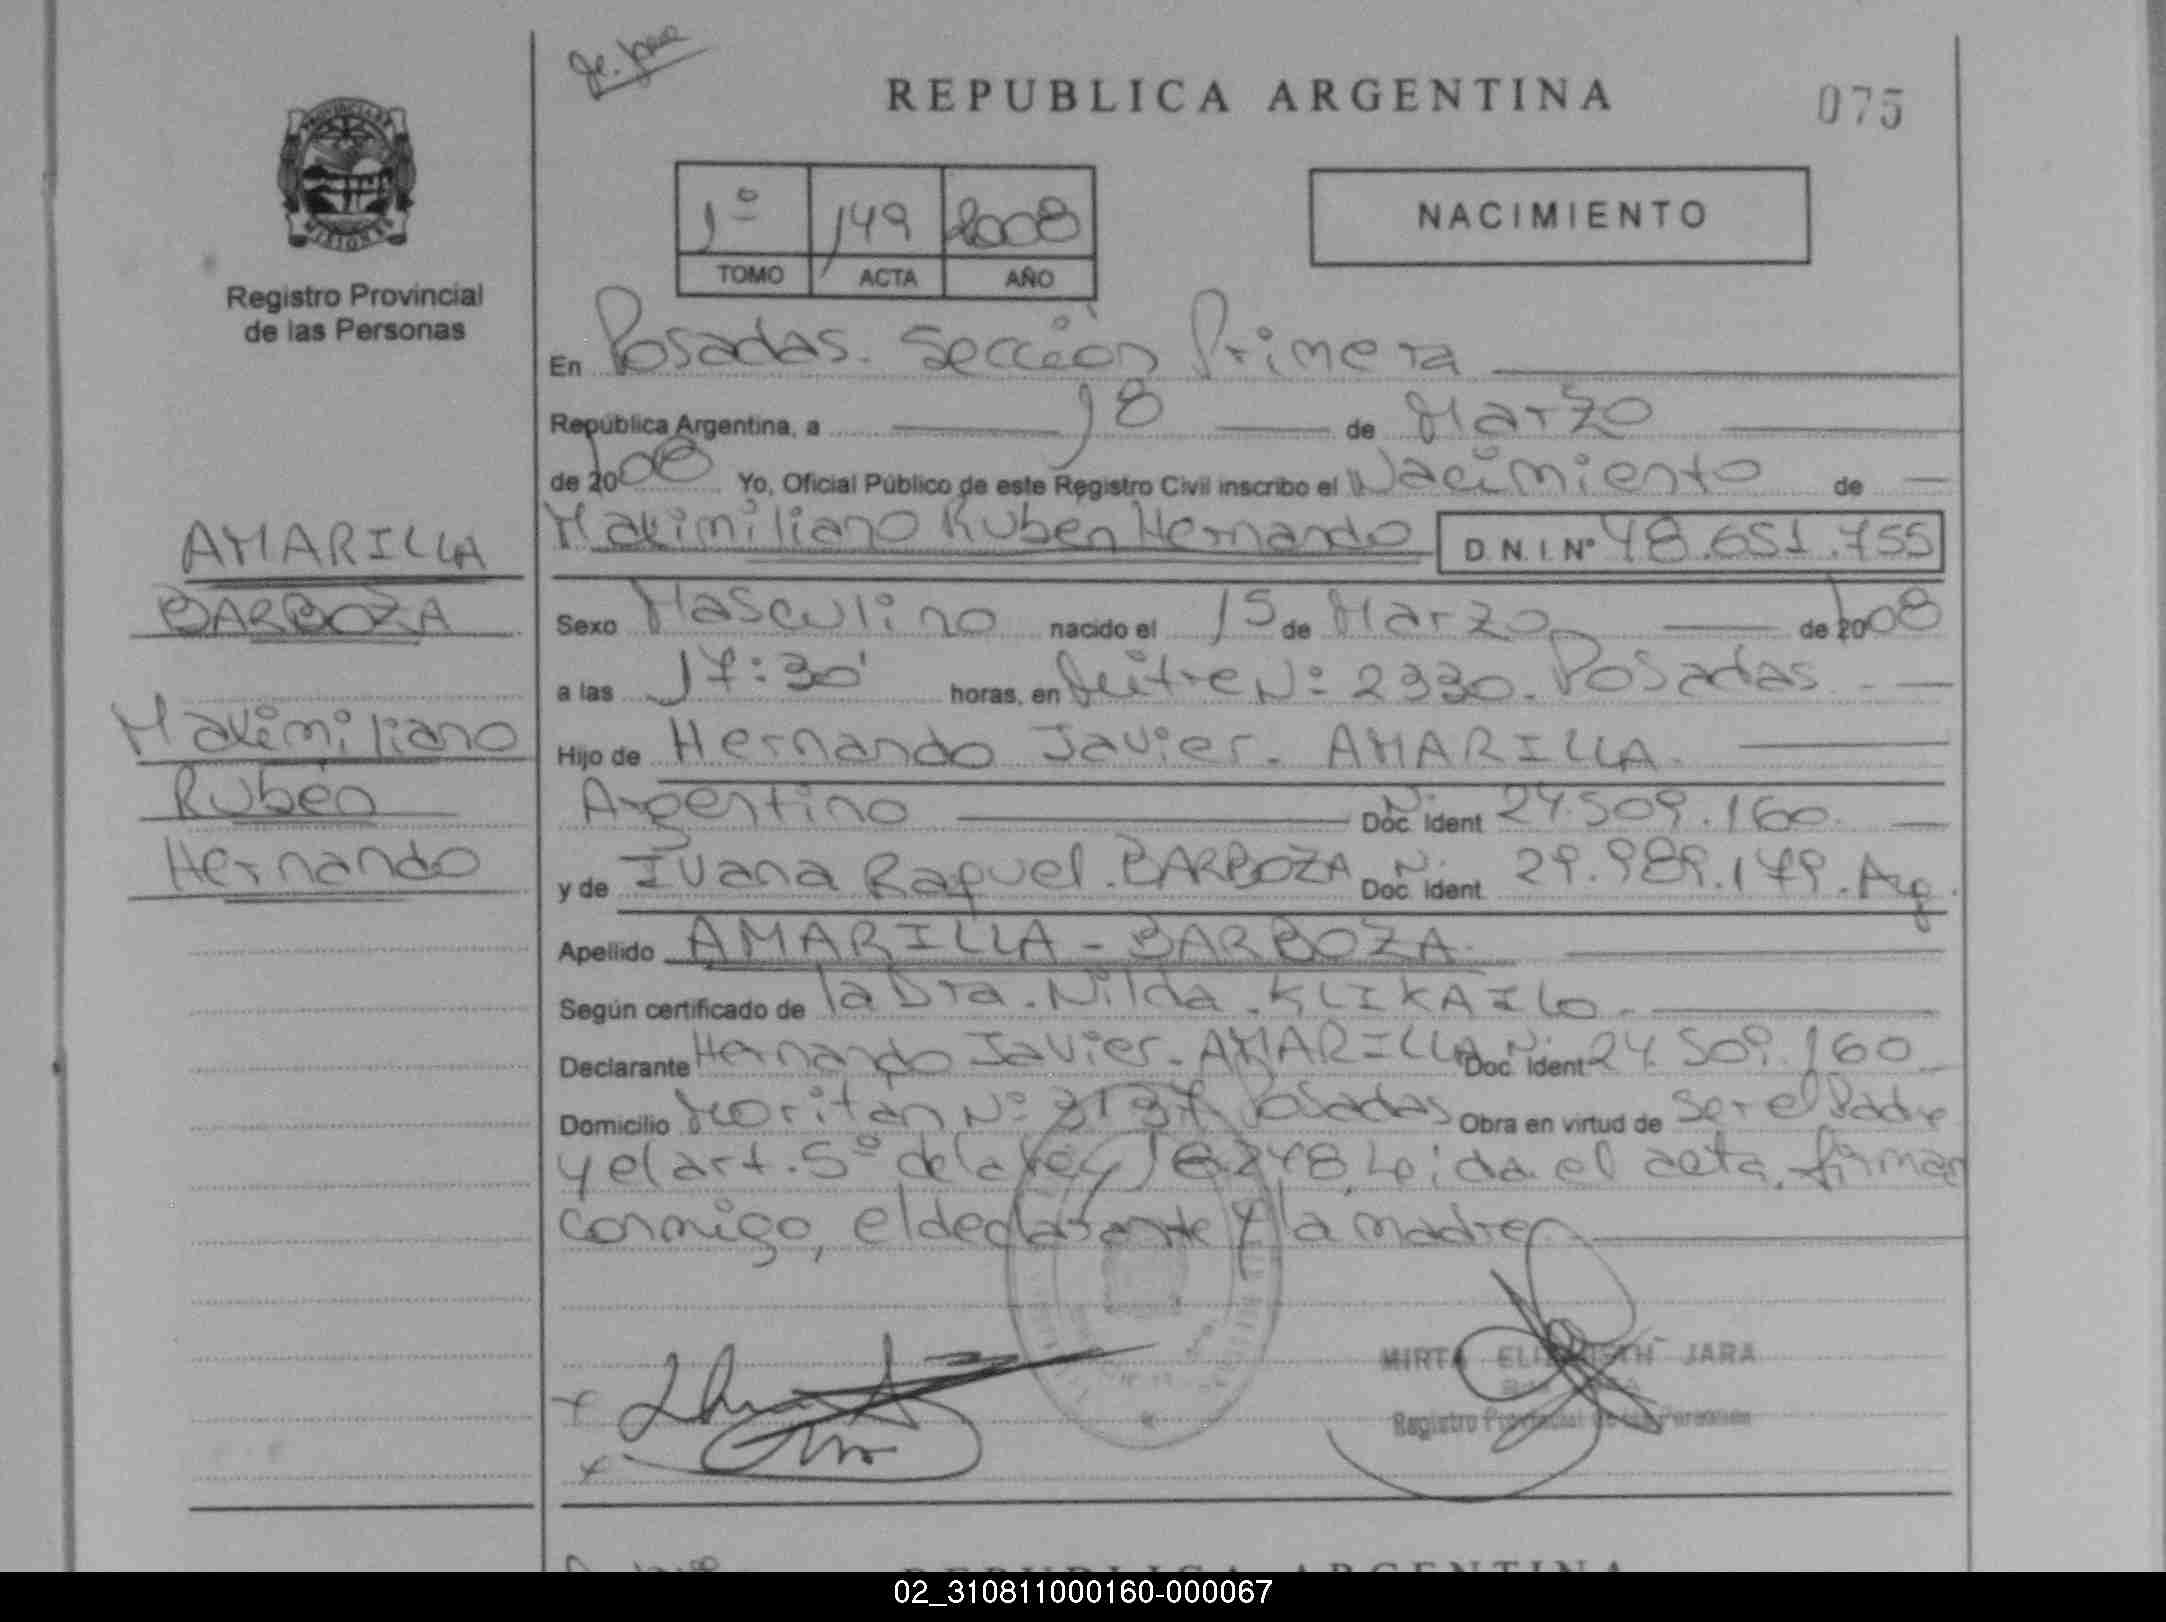 REPUBLICA ARGENTINA
075
PROVINCIA DE
MISIONES
Registro Provincial
de las Personas
1º 149 2008
TOMO ACTA AÑO
NACIMIENTO
En Posadas. Sección Primera
República Argentina, a 18 de Marzo
de 2008 Yo, Oficial Público de este Registro Civil inscribo el Nacimiento de
Maximiliano Ruben Hernando D.N.I.Nº 48.651.755
AMARILLA
BARBOZA
Maximiliano
Rubén
Hernando
Sexo Masculino nacido el 15 de Marzo de 2008
a las 17:30' horas, en Mitre Nº 2330. Posadas.
Hijo de Hernando Javier. AMARILLA.
Argentino Doc. Ident Nº 24.509.160.
y de Ivana Raquel. BARBOZA Doc. Ident. Nº 29.989.179. Arg.
Apellido AMARILLA - BARBOZA.
Según certificado de la Dra. Nilda.
Declarante Hernando Javier. AMARILLA Doc. Ident Nº 24.509.160
Domicilio Nº 3137 Posadas Obra en virtud de Ser el Padre
y el art. 5º de la ley 18.248. Leida el acta, firman
conmigo, el declarante y la madre.
MIRTA ELIZABETH JARA
Registro Provincial de las Personas
REPUBLICA ARGENTINA
02_310811000160-000067